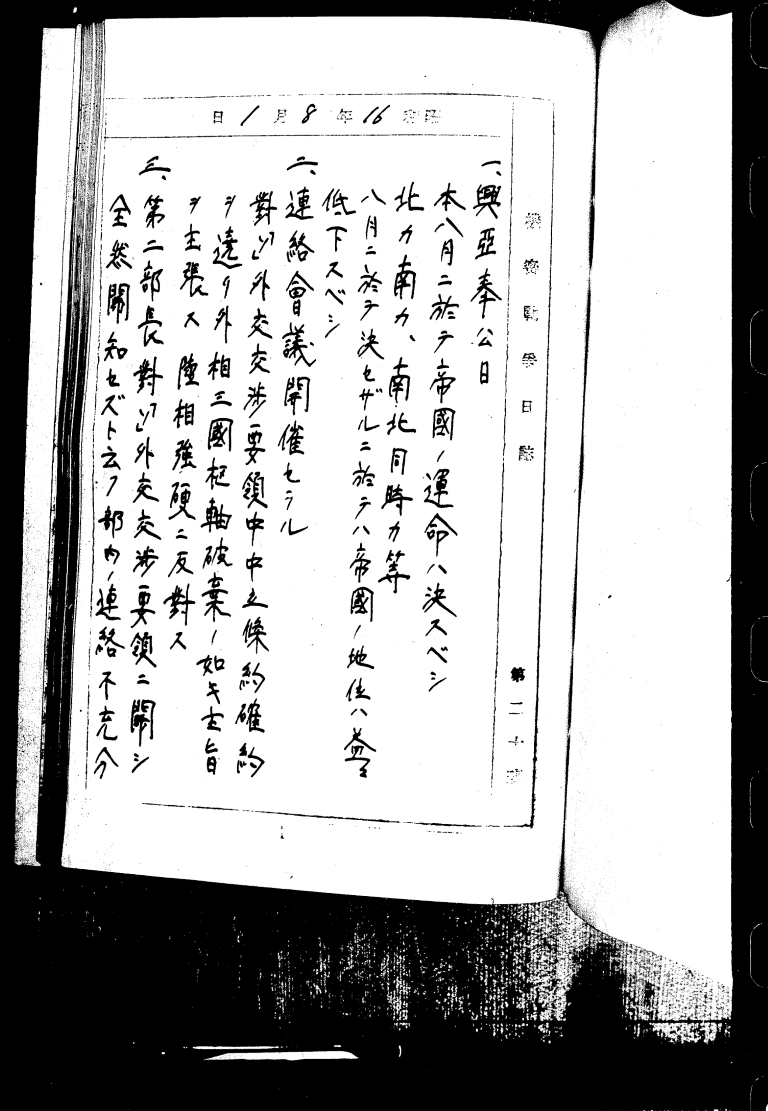 機密戰爭日誌
第二十班
昭和16年8月1日
一、興亞奉公日
本八月ニ於テ帝國ノ運命ハ決スベシ
北カ南カ、南北同時カ等
八月ニ於テ決セザルニ於テハ帝國ノ地位ハ益々
低下スベシ
二、連絡會議開催セラル
對「ソ」外交交渉要領中中立條約確約
ヲ遶リ外相三國枢軸破棄ノ如キ主旨
ヲ主張ス 陸相強硬ニ反對ス
三、第二部長對「ソ」外交交渉要領ニ關シ
全然關知セズト云フ部内ノ連絡不充分